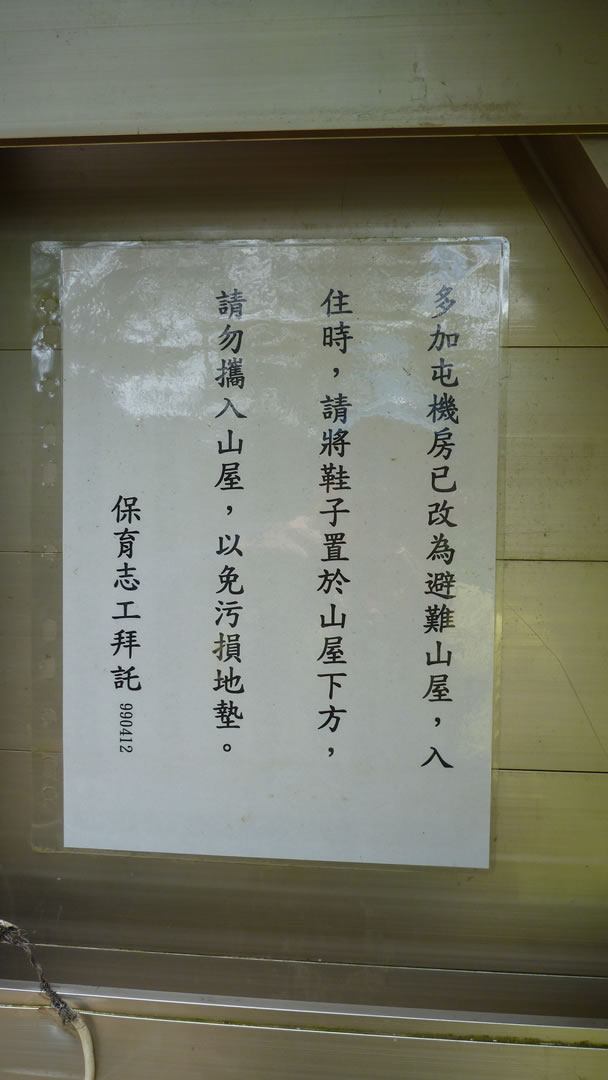 多加屯機房已改為避難山屋，入
住時，請將鞋子置於山屋下方，
請勿攜入山屋，以免污損地墊。
保育志工拜託 990412